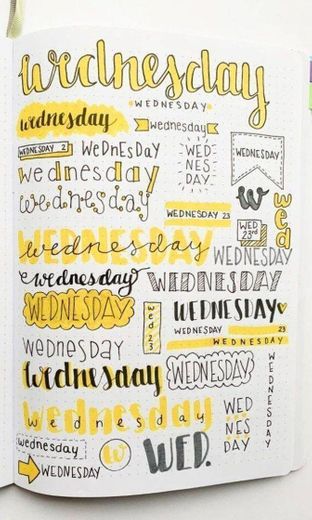 wednesday
WEDNESDAY
wednesday
wednesday
WEDNESDAY 2
WEDNESDAY
WED
NES
DAY
WEDNESDAY
wednesday
wednesday
W
wed
WEDNESDAY 23
WED
23rd
wednesday
wednesday
WEDNESDAY
wednesday
WEDNESDAY
WEDNESDAY
wed 23
WEDNESDAY
WEDNESDAY 23
WEDNESDAY
wednesday
WEDNESDAY
WEDNESDAY
wednesday
wednesday
wednesday
WED
NES
DAY
wednesday
W
WED.
WEDNESDAY